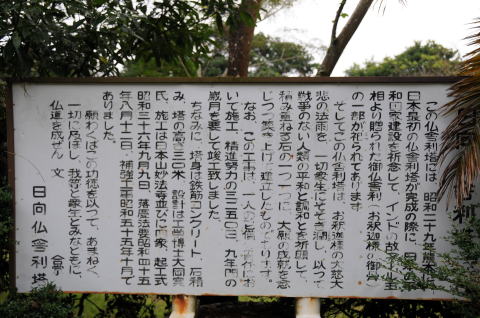 この仏舎利塔には、昭和二十九年熊本に
日本最初の仏舎利塔が完成の際に、日本の平
和国家建設を祈念して、インドの故ネール首
相より贈られた御仏舎利、お釈迦様の御骨
の一部が祀られてあります。
そしてこの仏舎利塔は、お釈迦様の大慈大
悲の法雨を、一切衆生にそそぎ潤し、以って
戦争のない人類の平和と調和とを祈願して、
積み重ねる石の一つ一つに、大願の成就を念
じつつ築き上げ、建立したものであります。
なお、この工事は、一人の
いて施工、精進努力の三二五〇三、九年門の
歳月を要して竣工致しました。
ちなみに、塔身は鉄筋コンクリート、石積
み、塔の高さ三二米、設計は工学博士大岡実
氏、施工は日本山妙法寺並びに
昭和三十六年九月九日、落慶法要昭和四十五
年八月十二日、補強工事昭和五十五年十月で
ありました。
願わくはこの功徳を以って、あまねく、
一切に及ぼし、我等と衆生とみなともに、
仏道を成ぜん 文
日向仏舎利塔